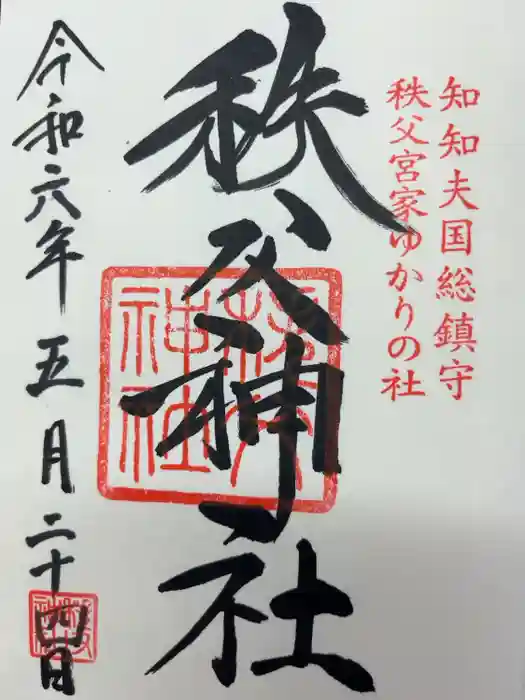 知知夫国総鎮守
秩父宮家ゆかりの社
秩父神社
秩父神社
令和六年五月二十四日
秩父神社